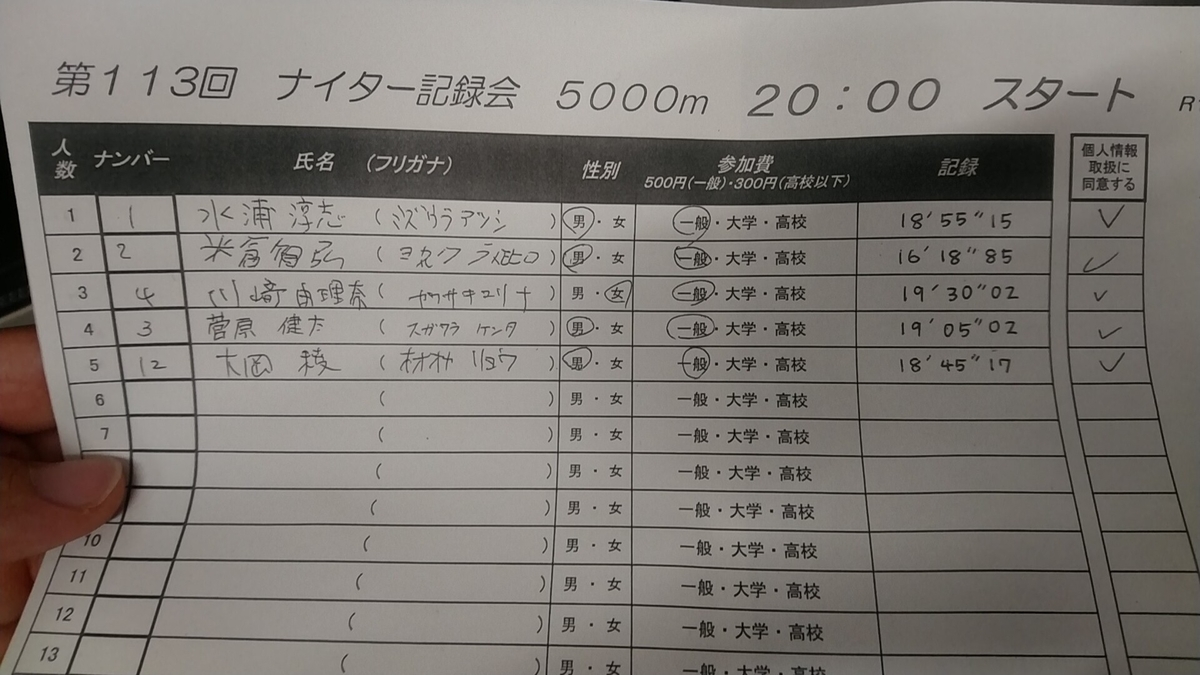 第113回 ナイター記録会 5000m 20:00 スタート R
人数 ナンバー 氏名 (フリガナ) 性別 参加費 500円(一般)・300円(高校以下) 記録 個人情報取扱に同意する
1 1 水浦淳志 (ミズウラアツシ) 男・女 一般・大学・高校 18'55"15 ✓
2 2 米倉智弘 (ヨネクラ) 男・女 一般・大学・高校 16'18"85 ✓
3 4 川崎由理奈 (カワサキユリナ) 男・女 一般・大学・高校 19'30"02 ✓
4 3 菅原 健太 (スガワラ ケンタ) 男・女 一般・大学・高校 19'05"02 ✓
5 12 大岡 稜 (リョウ) 男・女 一般・大学・高校 18'45"17 ✓
6 ( ) 男・女 一般・大学・高校
7 ( ) 男・女 一般・大学・高校
( ) 男・女 一般・大学・高校
( ) 男・女 一般・大学・高校
10 ( ) 男・女 一般・大学・高校
11 ( ) 男・女 一般・大学・高校
12 ( ) 男・女 一般・大学・高校
13 ( ) 男・女 一般・大学・高校